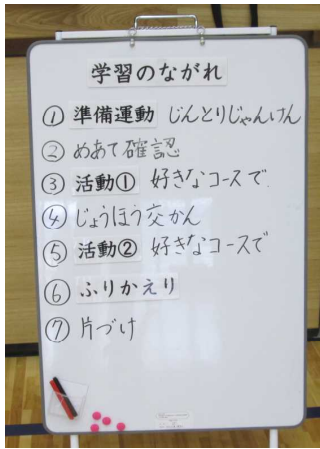 学習のながれ
① 準備運動 じんとりじゃんけん
② めあて確認
③ 活動① 好きなコースで
④ じょうほう交かん
⑤ 活動② 好きなコースで
⑥ ふりかえり
⑦ 片づけ